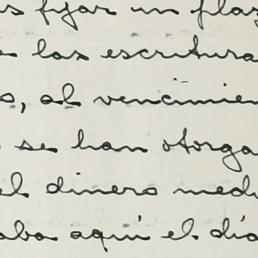 s fijar un plaz
e las escritura
s, al vencimien
se han otorga
el dinero medi
aba aquí el día